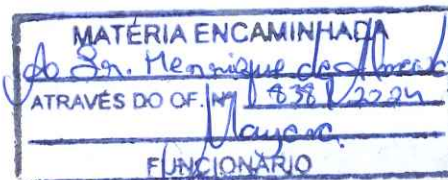 MATÉRIA ENCAMINHADA
Ao Sr. Henrique de
ATRAVÉS DO OF. Nº 838 / 2024
Mayara
FUNCIONÁRIO